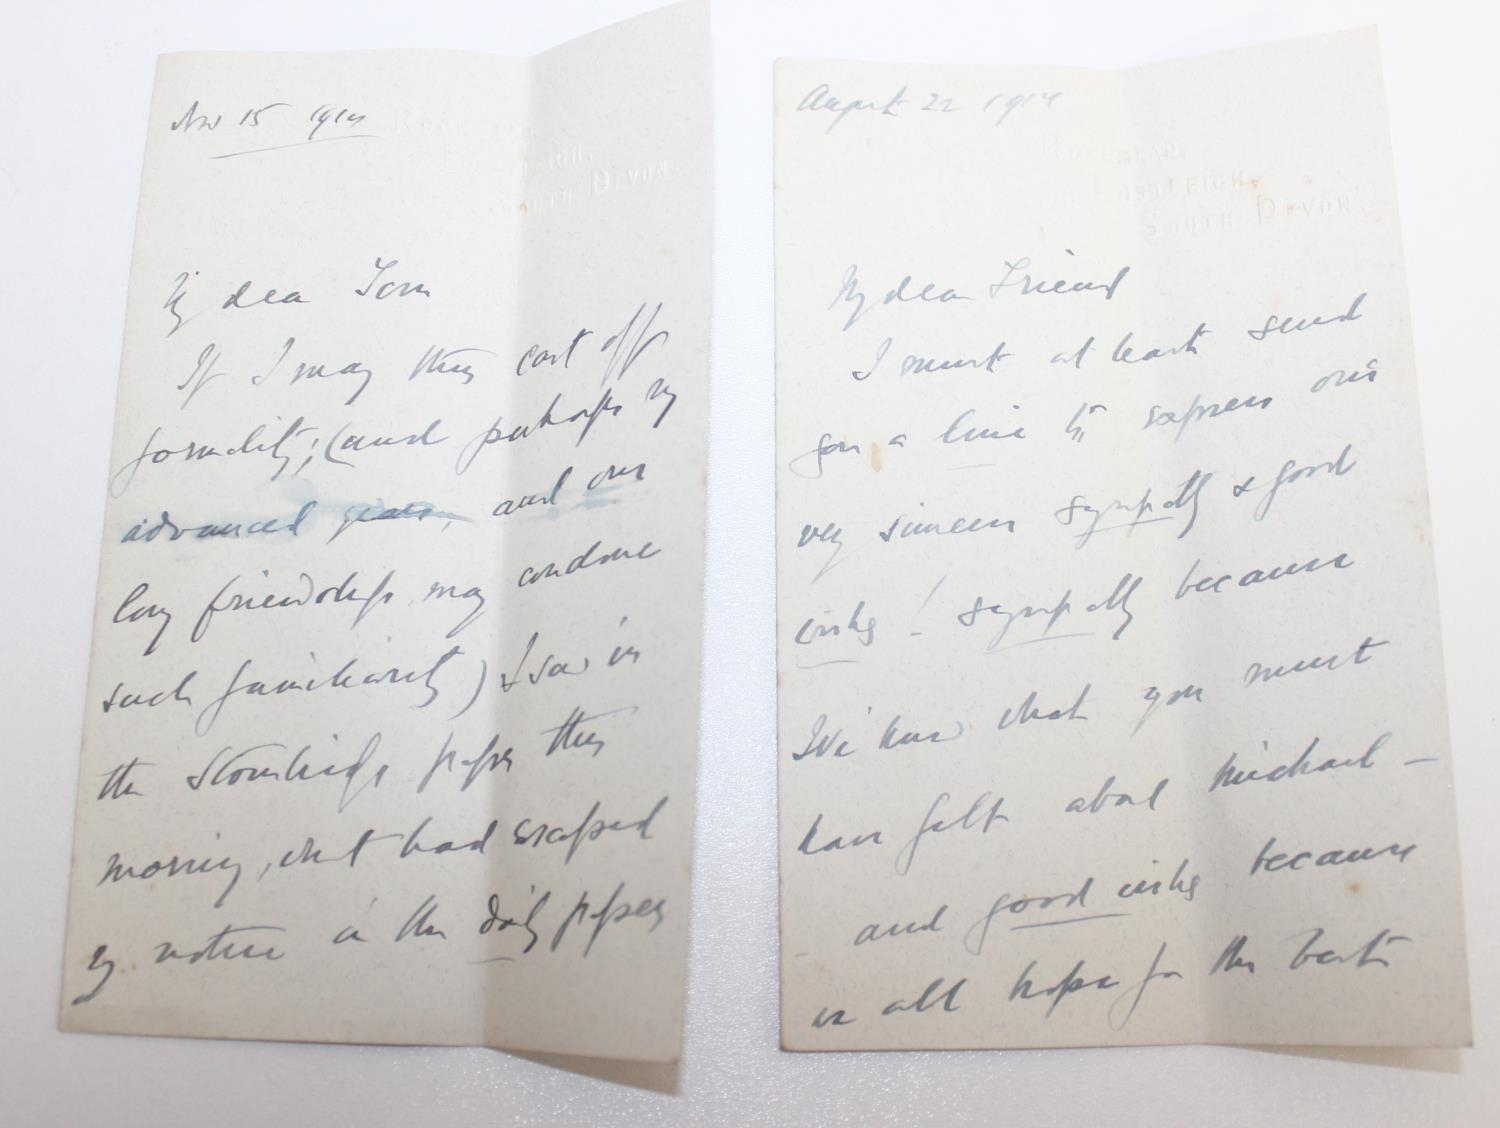 Nov 15 1914
South Devon.
My dear Tom
If I may thus cast off
formality; (and perhaps my
advanced years, and our
long friendship may condone
such familiarity) I saw in
the paper this
morning, what had escaped
my notice in the daily papers
August 22 1914
Rosemead,
Lustleigh,
South Devon.
My dear Friend
I must at least send
you a line to express our
very sincere sympathy & good
wishes! sympathy because
we know what you must
have felt about Michael —
and good wishes because
we all hope for the best